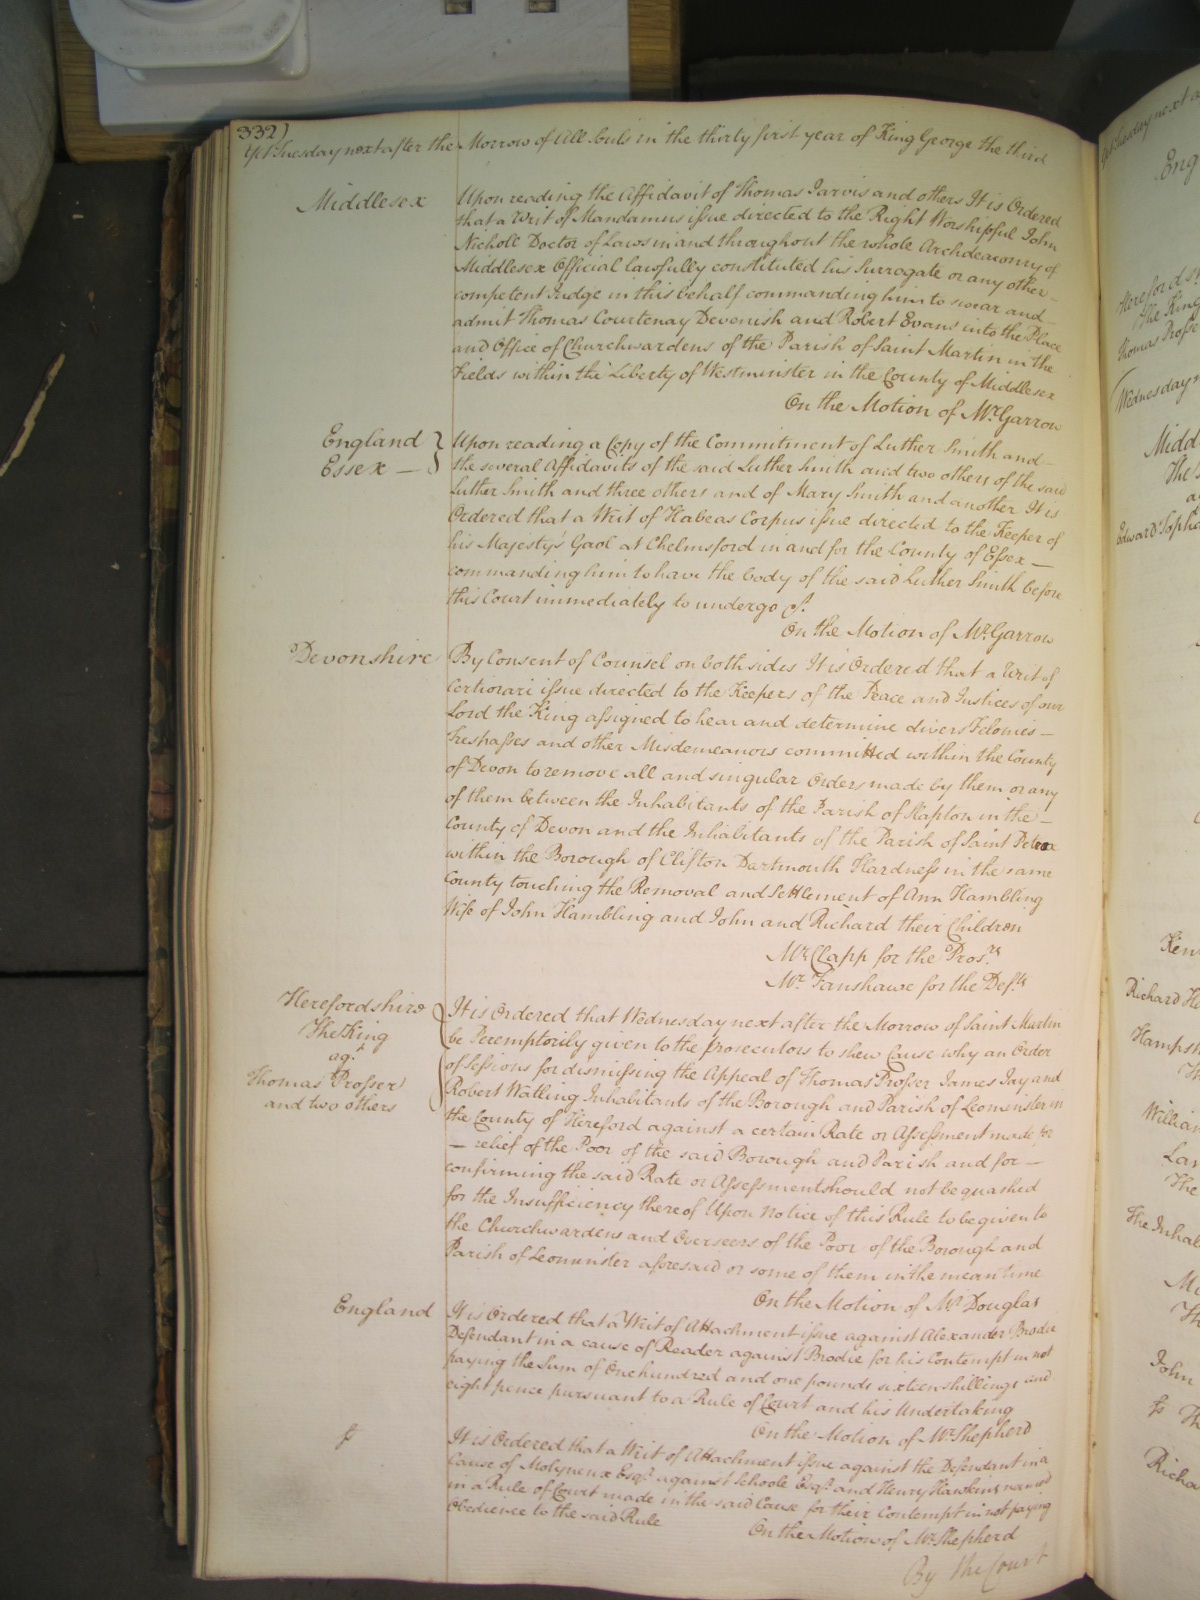 332)
Yet Tuesday next after the Morrow of All Souls in the thirty first year of King George the third
Middlesex
Upon reading the Affidavit of Thomas Jarvis and others It is Ordered
that a Writ of Mandamus issue directed to the Right Worshipful John
Nicholl Doctor of Laws in and throughout the whole Archdeaconry of
Middlesex Official lawfully constituted his Surrogate or any other
competent Judge in this behalf commanding him to swear and
admit Thomas Courtenay Devenish and Robert Evans into the Place
and Office of Churchwardens of the Parish of Saint Martin in the
Fields within the Liberty of Westminster in the County of Middlesex
On the Motion of Mr. Garrow
England }
Essex —
Upon reading a Copy of the Commitment of Luther Smith and
the several Affidavits of the said Luther Smith and two others of the said
Luther Smith and three others and of Mary Smith and another It is
Ordered that a Writ of Habeas Corpus issue directed to the Keeper of
his Majesty's Gaol at Chelmsford in and for the County of Essex —
commanding him to have the body of the said Luther Smith before
this Court immediately to undergo &c.
On the Motion of Mr. Garrow
Devonshire
By Consent of Counsel on both sides It is Ordered that a Writ of
Certiorari issue directed to the Keepers of the Peace and Justices of our
Lord the King assigned to hear and determine divers Felonies —
Trespasses and other Misdemeanors committed within the County
of Devon to remove all and singular Orders made by them or any
of them between the Inhabitants of the Parish of Slapton in the —
County of Devon and the Inhabitants of the Parish of Saint
within the Borough of Clifton Dartmouth Hardness in the same
County touching the Removal and Settlement of Ann Hambling
Wife of John Hambling and John and Richard their Children
Mr. Clapp for the Pros.rs
Mr. Fanshawe for the Def.ts
Herefordshire
The King
ag.t
Thomas Prosser
and two others
It is Ordered that Wednesday next after the Morrow of Saint Martin
be Peremptorily given to the prosecutors to shew Cause why an Order
of Sessions for dismissing the Appeal of Thomas Prosser James Jay and
Robert Watling Inhabitants of the Borough and Parish of Leominster in
the County of Hereford against a certain Rate or Assessment made for
— relief of the Poor of the said Borough and Parish and for —
confirming the said Rate or Assessment should not be quashed
for the Insufficiency thereof Upon notice of this Rule to be given to
the Churchwardens and Overseers of the Poor of the Borough and
Parish of Leominster aforesaid or some of them in the mean time
On the Motion of Mr. Douglas
England
It is Ordered that a Writ of Attachment issue against Alexander Brodie
Defendant in a cause of Reader against Brodie for his Contempt in not
paying the Sum of One hundred and one pounds sixteen shillings and
eight pence pursuant to a Rule of Court and his Undertaking
On the Motion of Mr. Shepherd
It is Ordered that a Writ of Attachment issue against the Defendant in a
Cause of Molyneux Esq.r against Schoole Esq.r and Henry Hawkins named
in a Rule of Court made in the said Cause for their Contempt in not paying
Obedience to the said Rule
On the Motion of Mr. Shepherd
By the Court
Eng
Herefordsh
The King
Thomas Prosse
Wednesday
Midd
The
Edward Sopha
Ken
Richard H
Hampsh
Th
William
Lan
The
The Inhab
John
Richa